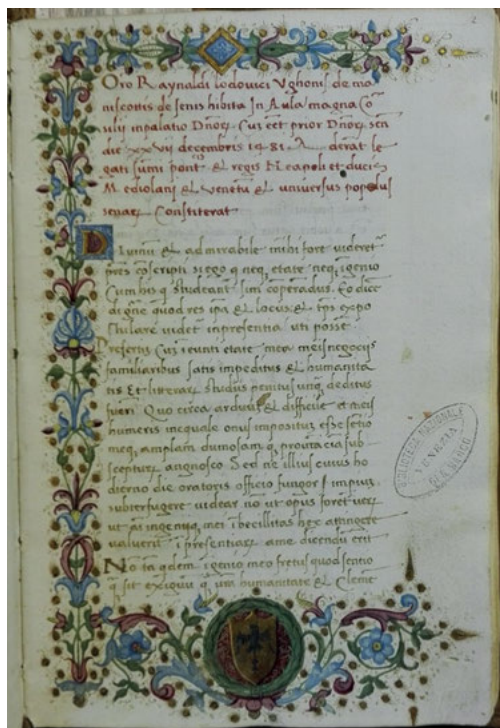 Oro Raynaldi lodovici Vghonis de ma
niscottis de senis hibita In Aula magna Co
silij inpalatio Dnoꝝ. Cuȝ eēt prior Dnoꝝ sen
die xxvij decembris 1481 derāt le
gati sūmi pont & regis Neapoli et ducis
Mediolani & Venetū & universus populus
senaꝝ Constiterat
Divinū & admirabile mihi fore videret
pres coscripti si ego q neq etate neq igenio
Cum his q studeant sim coperadus. Eo dicē
di gne quod res ipa & locus & tps expo
stulare videt inpresentia uti posse
Presertȝ Cuȝ ieunti etate mea meis negocijs
familiaribus satis impeditus & humanita
tis Et litteraꝝ studijs penitus unq deditus
fueri Quo circa arduū & difficile et meis
humeris inequale onus impositū esse sētio
meq, amplam dumosam q, provīciā sub
scepturȝ angnosco Sed ne illius cuius ho
dierno die oratoris officio fungor
subterfugere videar nō ut opus foret verȝ
ut mei ibecillitas hec attingere
valuerit presentiaꝝ ame dicendū erit
No ta qdem igenio meo fretus quod sentio
q sit exiguū q vra humanitate & Cleme
BIBLIOTECA NAZIONALE
VENEZIA
DI S. MARCO